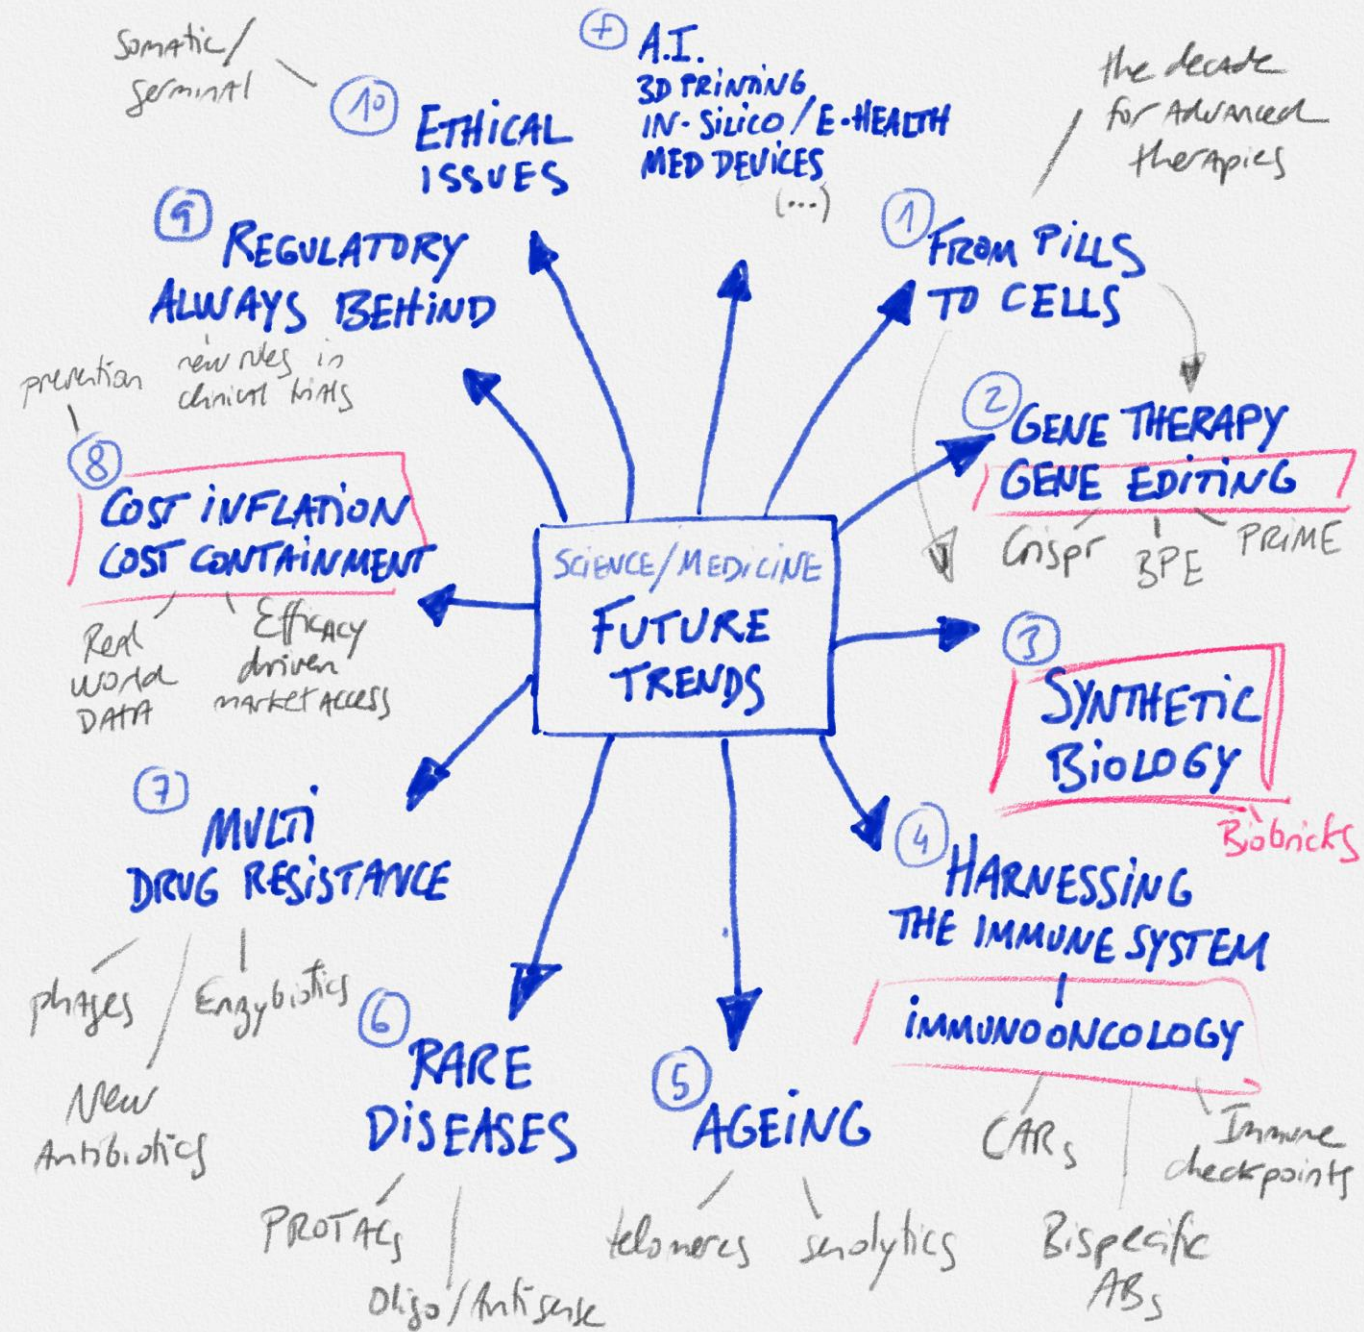 SCIENCE/MEDICINE
FUTURE
TRENDS
+
A.I.
3D PRINTING
IN-SILICO/E-HEALTH
MED DEVICES
(...)
1
FROM PILLS
TO CELLS
the decade
for Advanced
therapies
2
GENE THERAPY
GENE EDITING
Crispr
BPE
PRIME
3
SYNTHETIC
BIOLOGY
Biobricks
4
HARNESSING
THE IMMUNE SYSTEM
IMMUNOONCOLOGY
CARs
Bispecific
ABs
Immune
checkpoints
5
AGEING
telomeres
senolytics
6
RARE
DISEASES
PROTACs
Oligo/Antisense
7
MULTI
DRUG RESISTANCE
phages
New
Antibiotics
Enzybiotics
8
COST INFLATION
COST CONTAINMENT
prevention
Real
World
DATA
Efficacy
driven
market access
9
REGULATORY
ALWAYS BEHIND
new rules in
clinical trials
10
ETHICAL
ISSUES
Somatic/
germinal